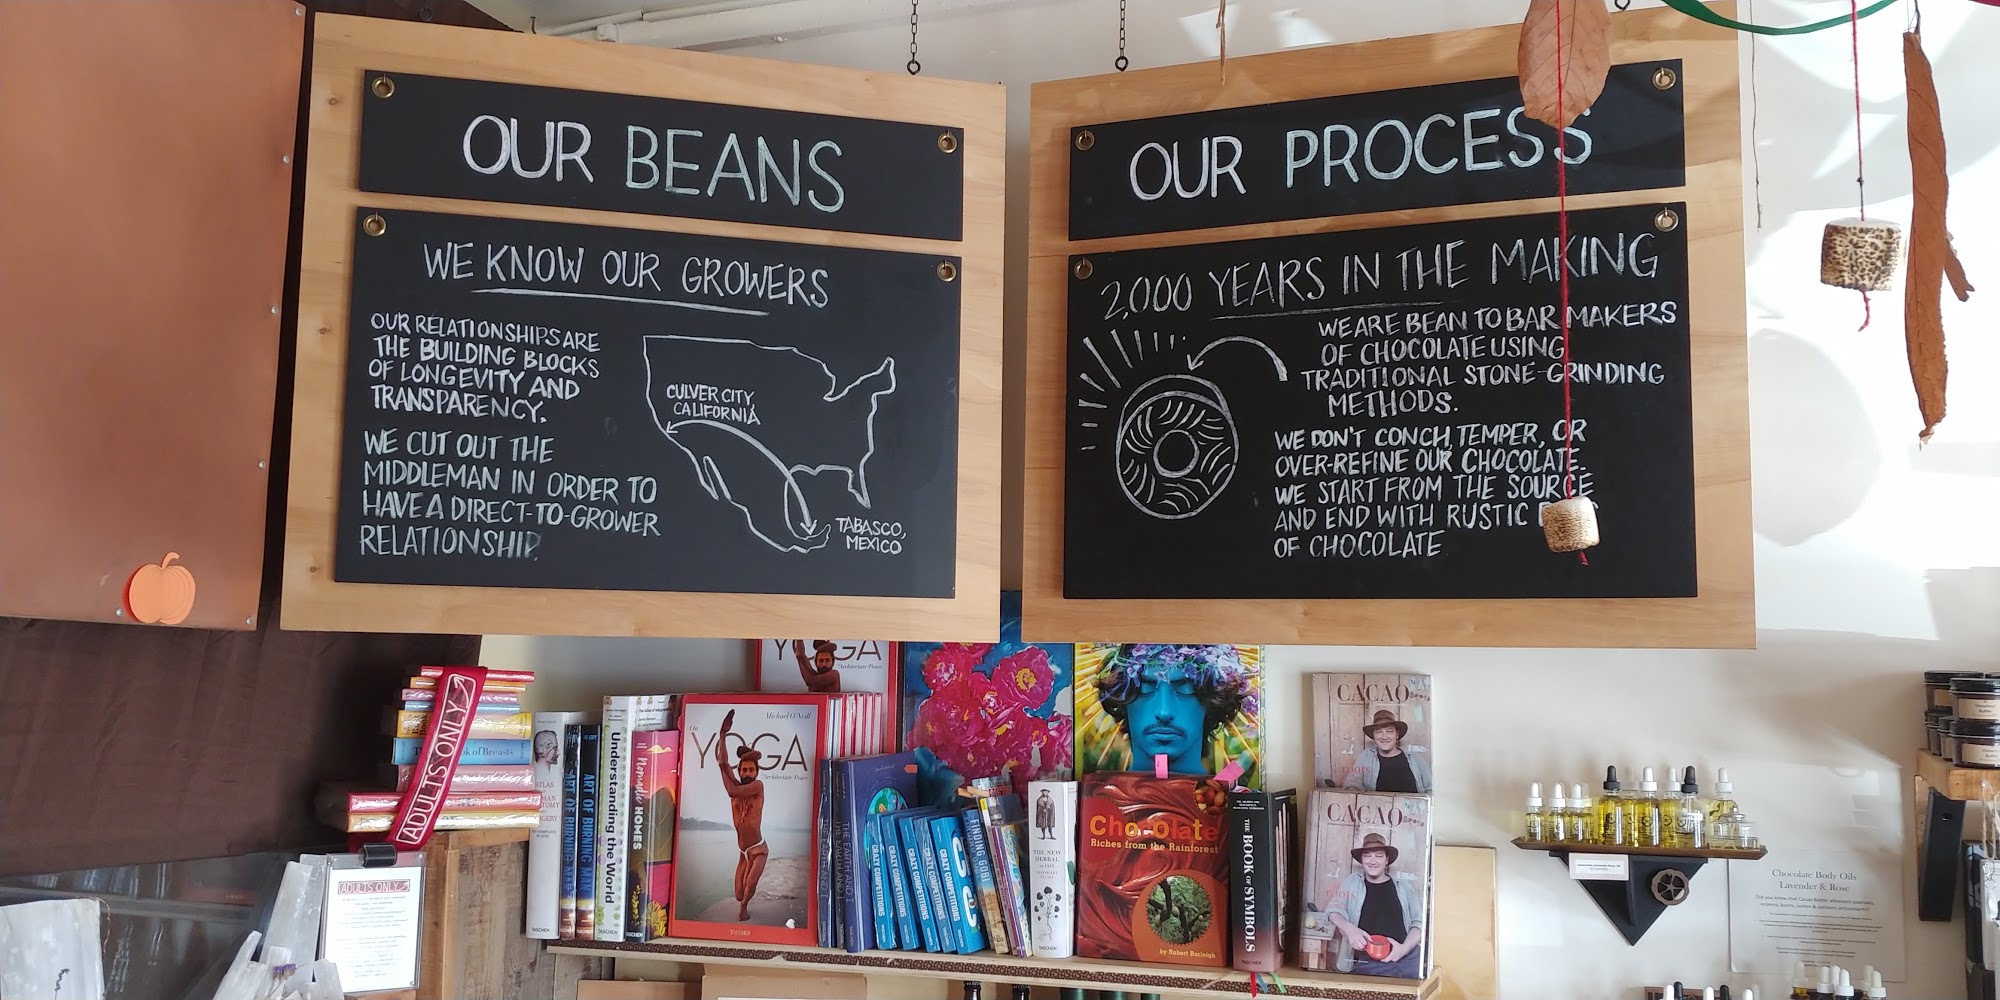 OUR BEANS
WE KNOW OUR GROWERS
OUR RELATIONSHIPS ARE
THE BUILDING BLOCKS
OF LONGEVITY AND
TRANSPARENCY.
WE CUT OUT THE
MIDDLEMAN IN ORDER TO
HAVE A DIRECT-TO-GROWER
RELATIONSHIP.
CULVER CITY,
CALIFORNIA
TABASCO,
MEXICO
OUR PROCESS
2,000 YEARS IN THE MAKING
WE ARE BEAN TO BAR MAKERS
OF CHOCOLATE USING
TRADITIONAL STONE-GRINDING
METHODS.
WE DON'T CONCH, TEMPER, OR
OVER-REFINE OUR CHOCOLATE.
WE START FROM THE SOURCE
AND END WITH RUSTIC
OF CHOCOLATE
YOGA
Architecture Peace
ADULTS ONLY
of Breasts
ADULTS ONLY
ATLAS
ART OF BURNING MAN
ART OF BURNING MAN
Understanding the World
TASCHEN
Nomadic HOMES
TASCHEN
On
Michael O'Neill
YOGA
Architecture Peace
TASCHEN
CRAZY COMPETITIONS
CRAZY COMPETITIONS
CRAZY COMPETITIONS
CRAZY COMPETITIONS
FINDING
THE NEW
HERBAL
TASCHEN
Chocolate
Riches from the Rainforest
by Robert Burleigh
THE
BOOK OF SYMBOLS
TASCHEN
CACAO
ROOTS
CACAO
ROOTS
Chocolate Body Oils
Lavender & Rose